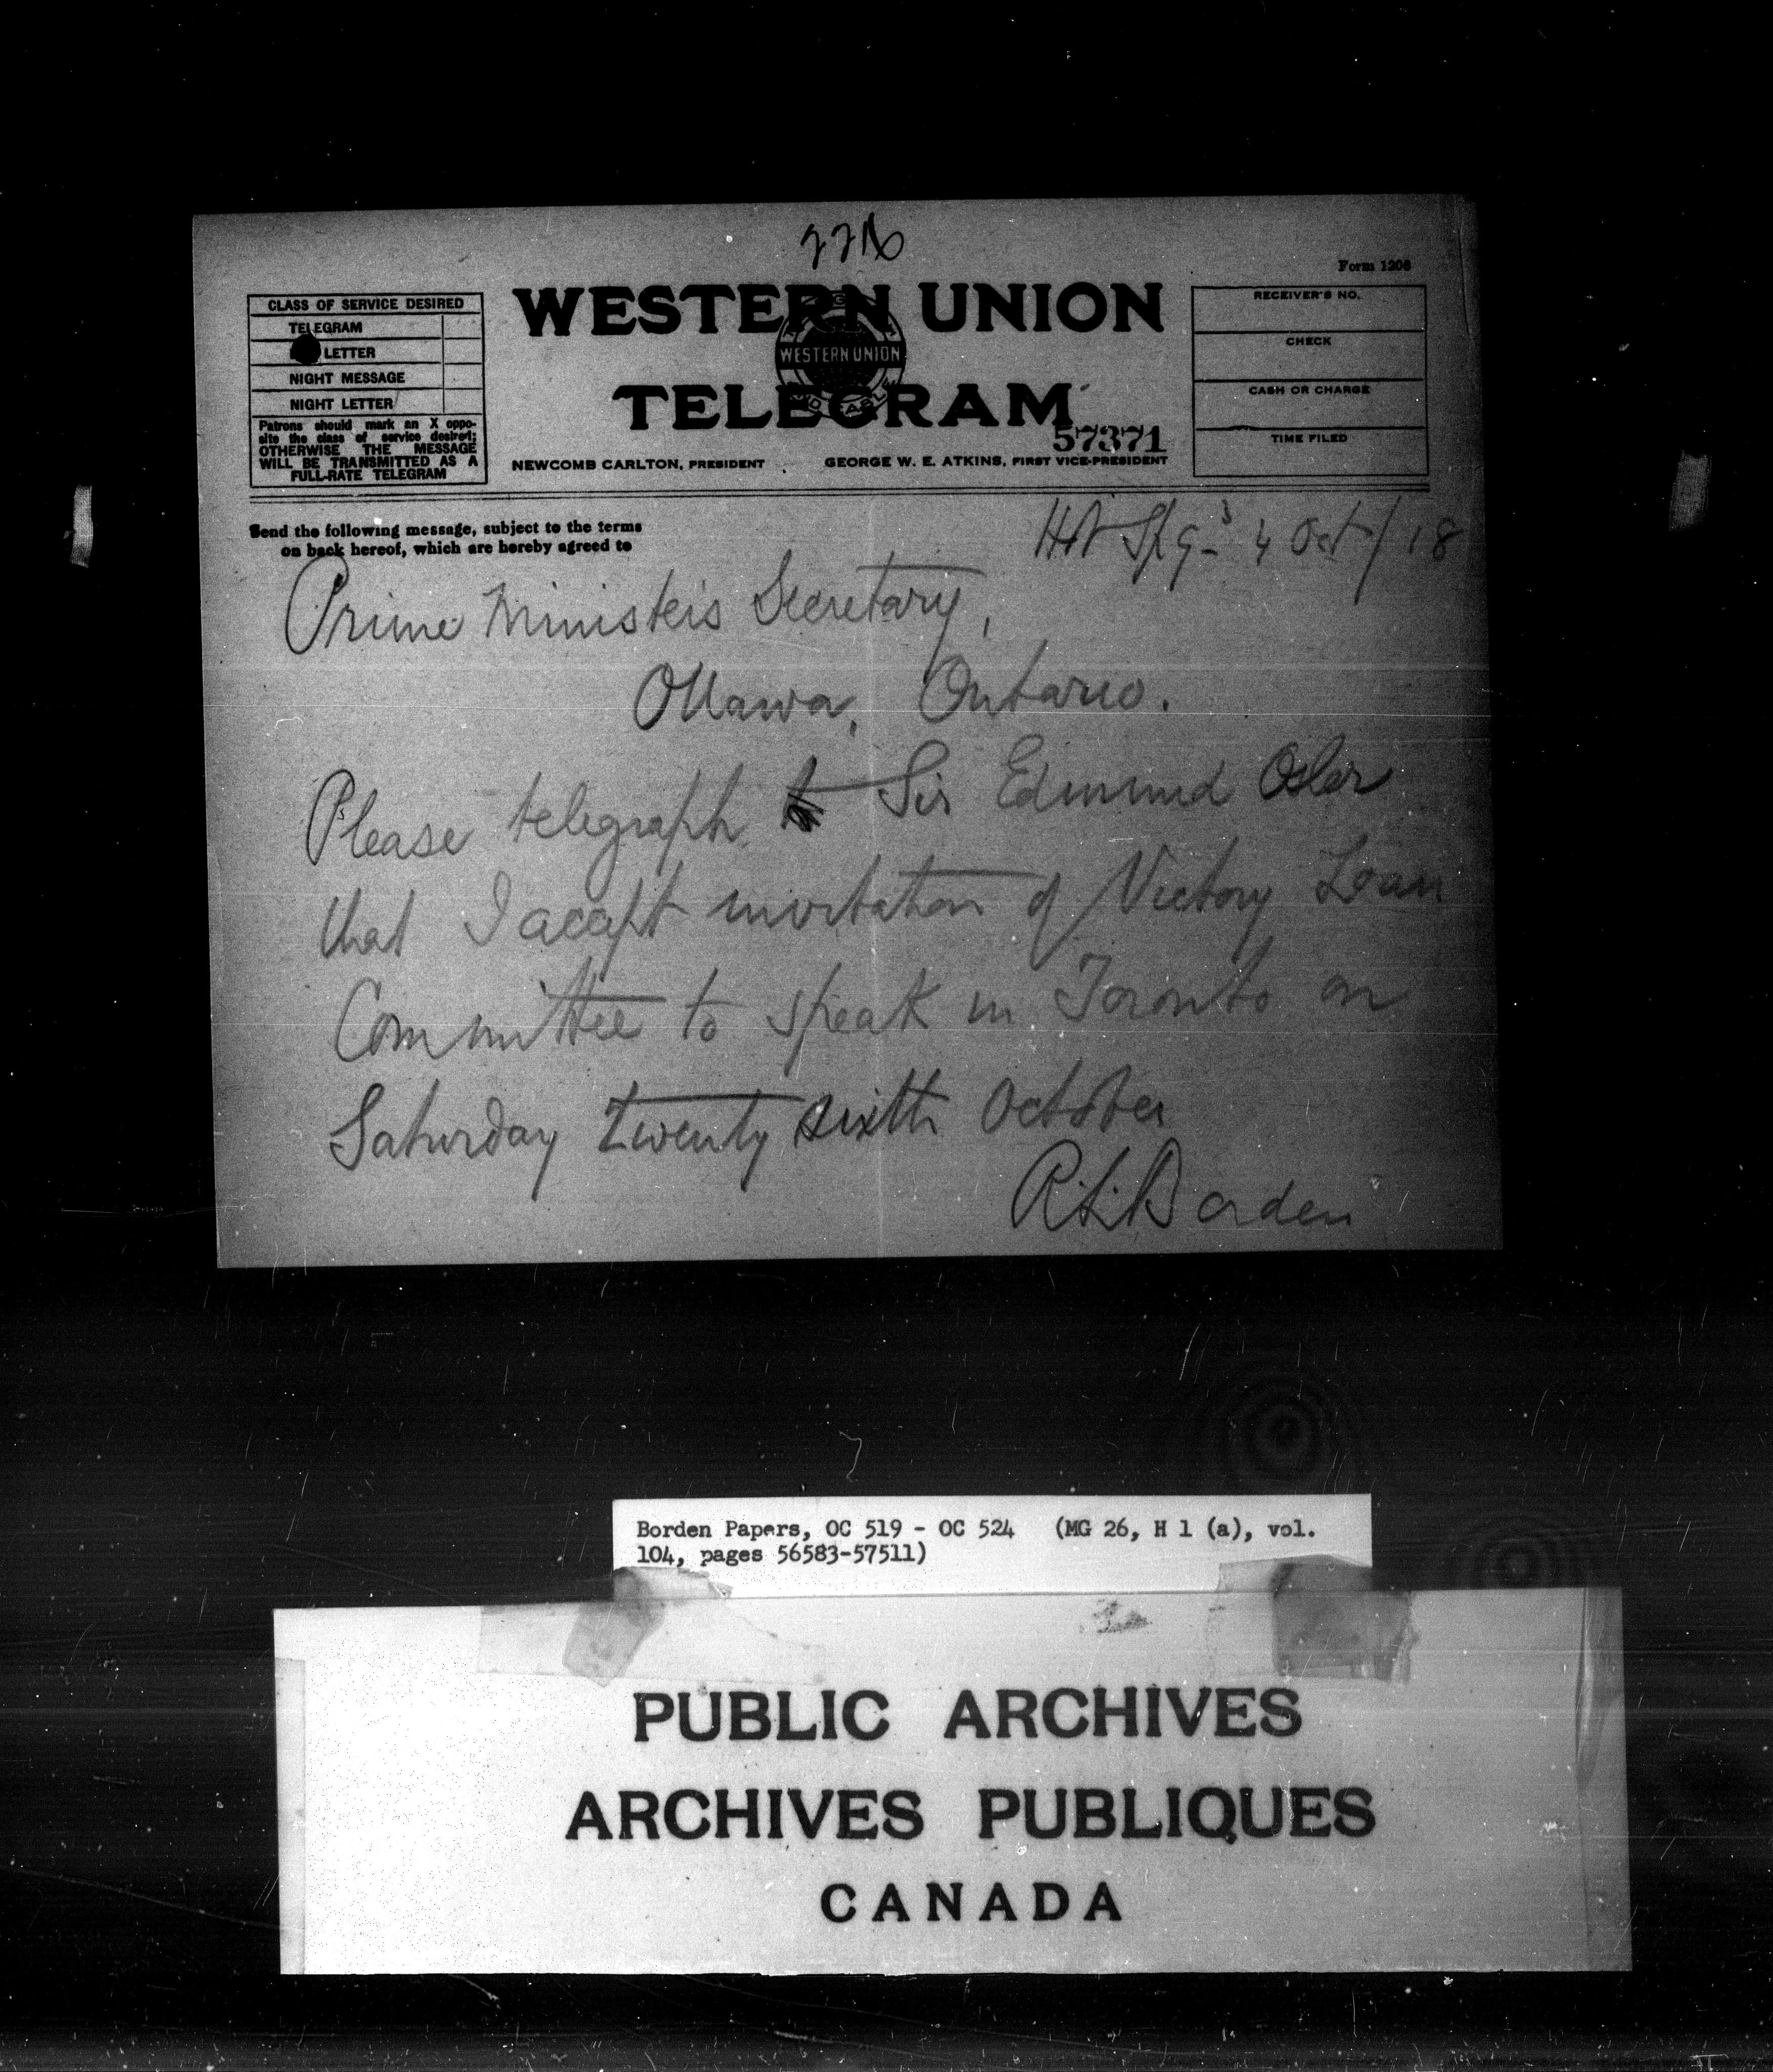 Form 1206
CLASS OF SERVICE DESIRED
TELEGRAM
LETTER
NIGHT MESSAGE
NIGHT LETTER
Patrons should mark an X oppo-
site the class of service desired;
OTHERWISE THE MESSAGE
WILL BE TRANSMITTED AS A
FULL-RATE TELEGRAM
WESTERN UNION
WESTERN UNION
TELEGRAM
57371
NEWCOMB CARLTON, PRESIDENT
GEORGE W. E. ATKINS, FIRST VICE-PRESIDENT
RECEIVER'S NO.
CHECK
CASH OR CHARGE
TIME FILED
Send the following message, subject to the terms
on back hereof, which are hereby agreed to
Hot Spgs 4 Oct/18
Prime Ministers Secretary,
Ottawa, Ontario.
Please telegraph to Sir Edmund Osler
that I accept invitation of Victory Loan
Committee to speak in Toronto on
Saturday twenty sixth October
R.L. Borden
Borden Papers, OC 519 - OC 524 (MG 26, H 1 (a), vol.
104, pages 56583-57511)
PUBLIC ARCHIVES
ARCHIVES PUBLIQUES
CANADA